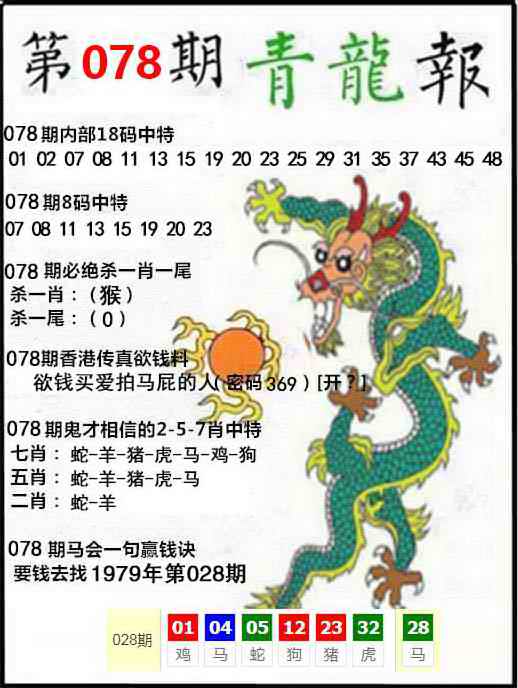 第078期 青龍報
078期内部18码中特
01 02 07 08 11 13 15 19 20 23 25 29 31 35 37 43 45 48
078期8码中特
07 08 11 13 15 19 20 23
078 期必绝杀一肖一尾
杀一肖：（猴）
杀一尾：（0）
078期香港传真欲钱料
欲钱买爱拍马屁的人( 密码369 ) [开？]
078期鬼才相信的2-5-7肖中特
七肖：蛇-羊-猪-虎-马-鸡-狗
五肖：蛇-羊-猪-虎-马
二肖：蛇-羊
078 期马会一句赢钱诀
要钱去找1979年第028期
028期 01 04 05 12 23 32 28
鸡 马 蛇 狗 猪 虎 马